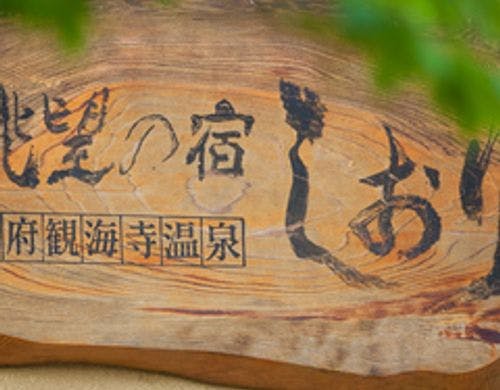 眺望の宿 しおり
府観海寺温泉